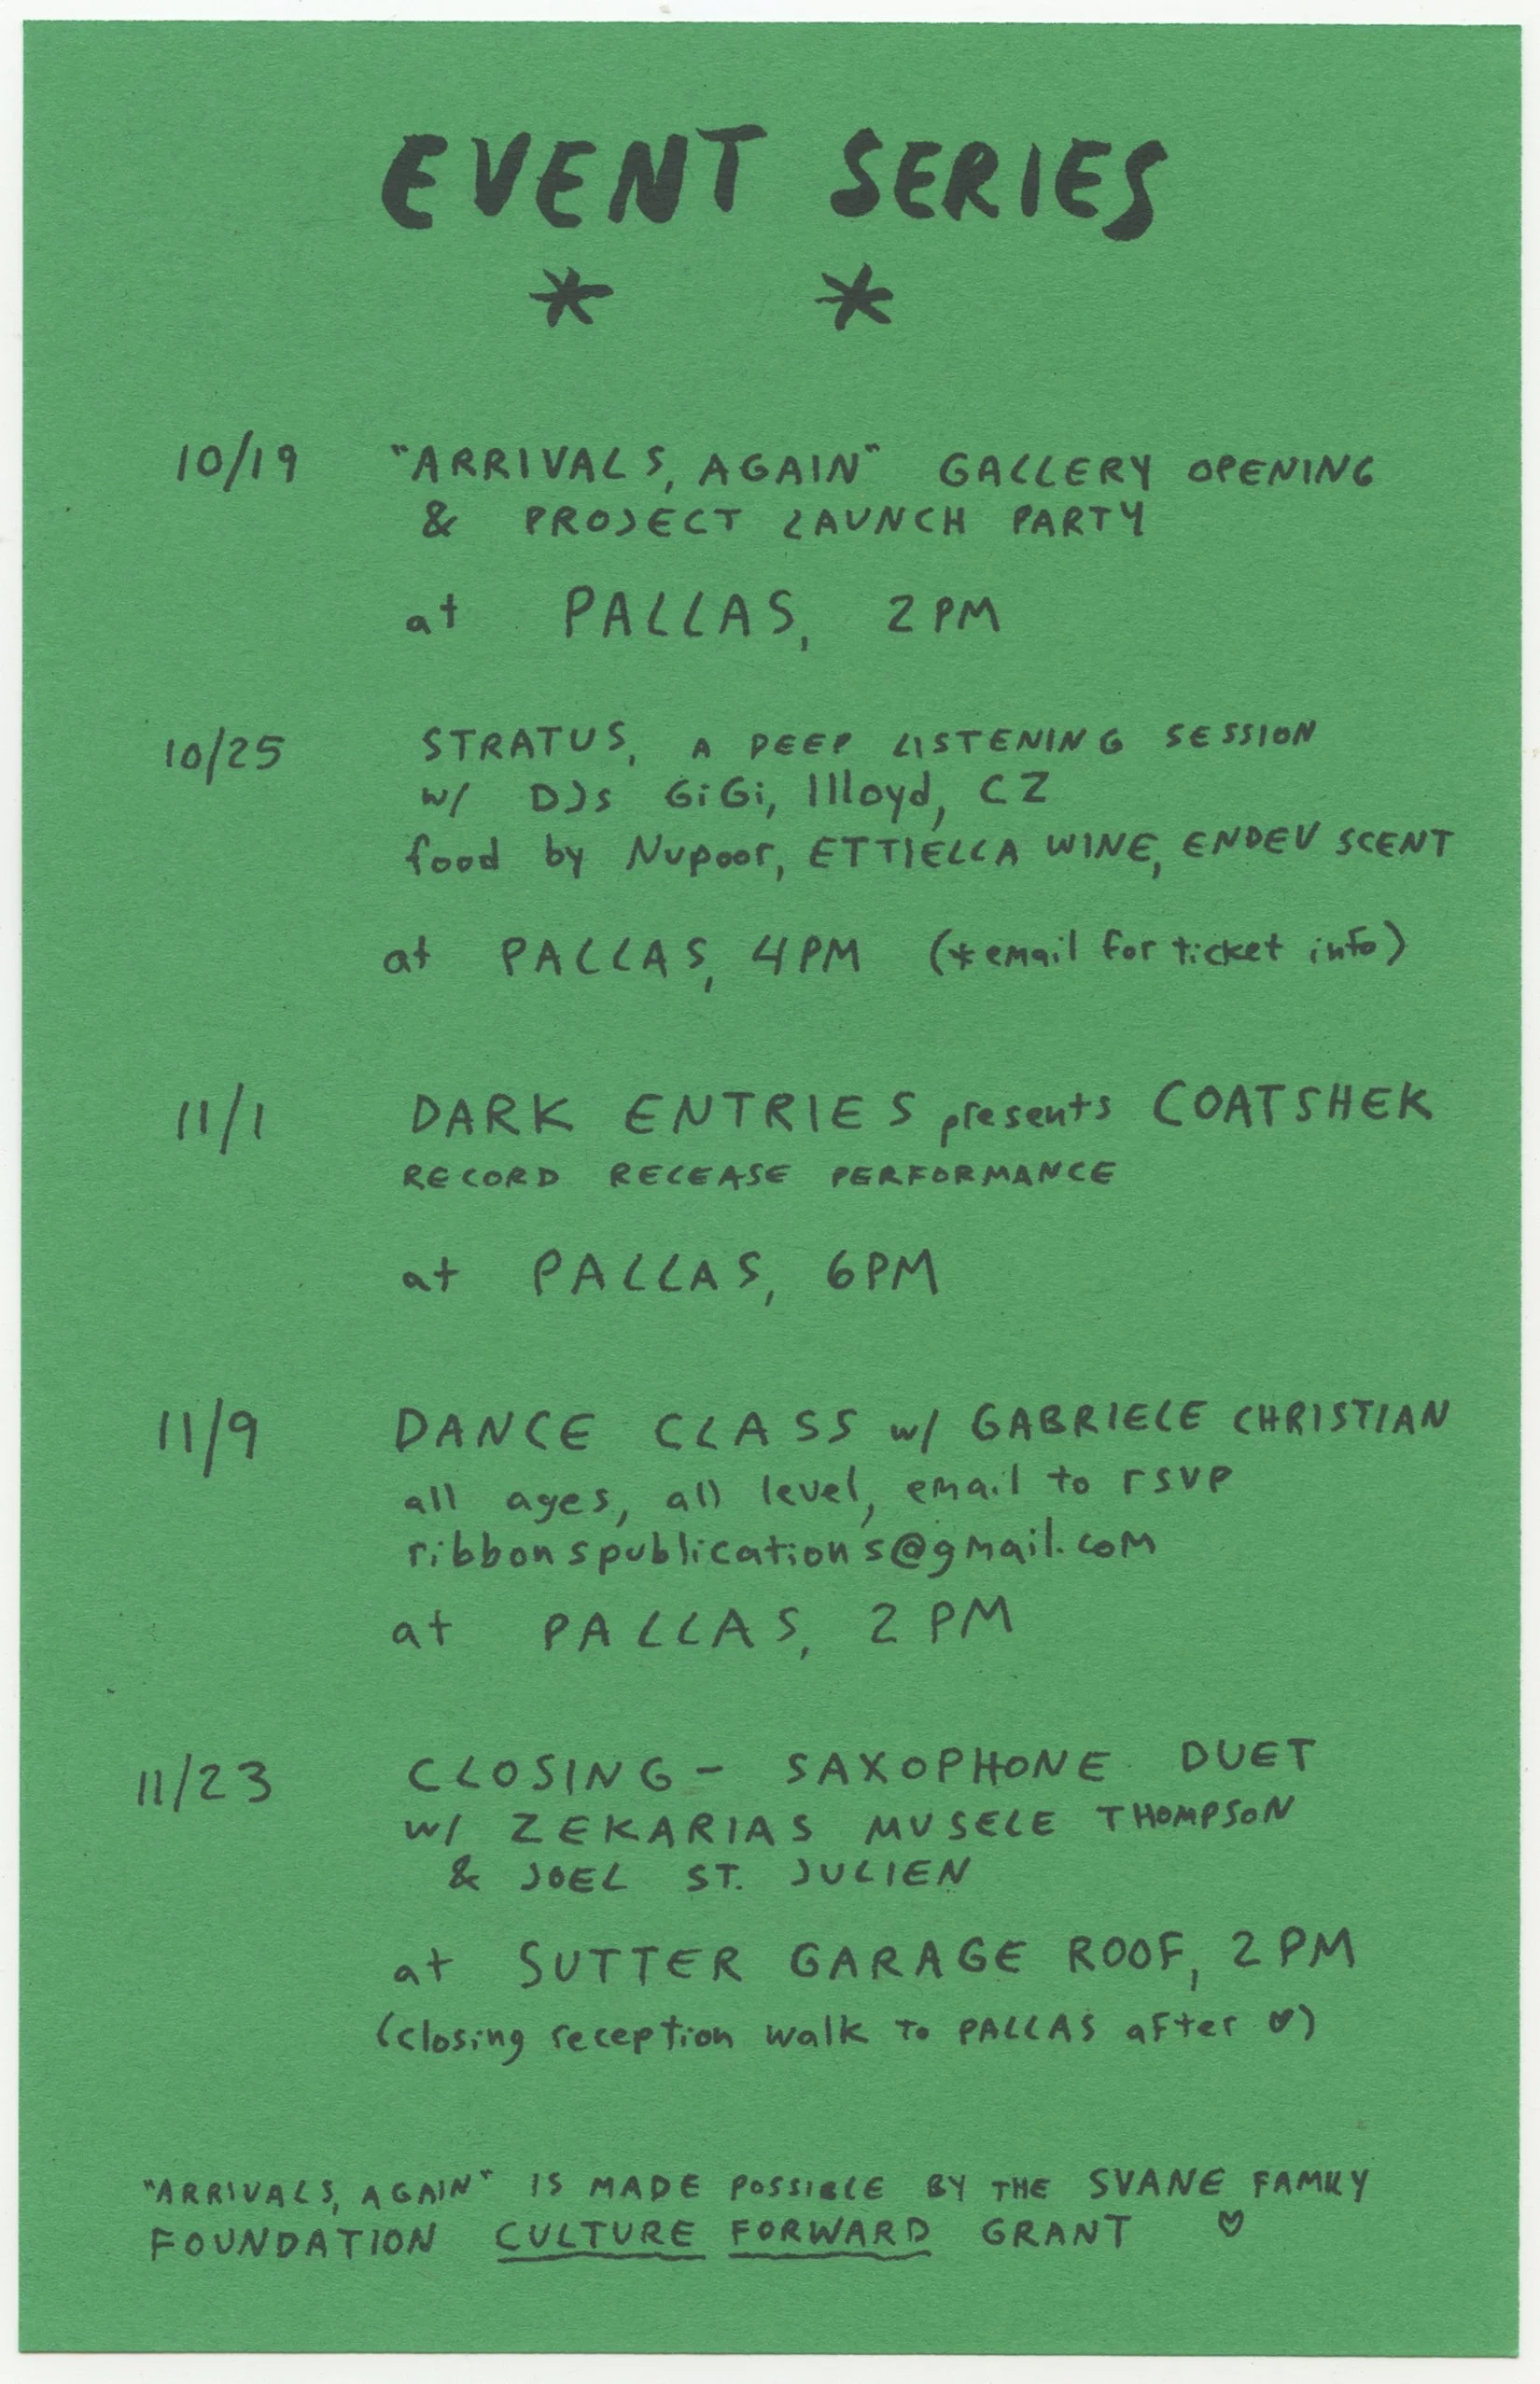 EVENT SERIES
* *
10/19 "ARRIVALS, AGAIN" GALLERY OPENING
& PROJECT LAUNCH PARTY
at PALLAS, 2PM
10/25 STRATUS, A DEEP LISTENING SESSION
w/ DJs GiGi, lllloyd, CZ
food by Nupoor, ETTIELLA WINE, ENDEV SCENT
at PALLAS, 4PM (*email for ticket info)
11/1 DARK ENTRIES presents COATSHEK
RECORD RELEASE PERFORMANCE
at PALLAS, 6PM
11/9 DANCE CLASS w/ GABRIELE CHRISTIAN
all ages, all level, email to rsvp
ribbonspublications@gmail.com
at PALLAS, 2PM
11/23 CLOSING- SAXOPHONE DUET
w/ ZEKARIAS MUSELE THOMPSON
& JOEL ST. JULIEN
at SUTTER GARAGE ROOF, 2PM
(closing reception walk to PALLAS after ♡)
"ARRIVALS, AGAIN" IS MADE POSSIBLE BY THE SVANE FAMILY
FOUNDATION CULTURE FORWARD GRANT ♡